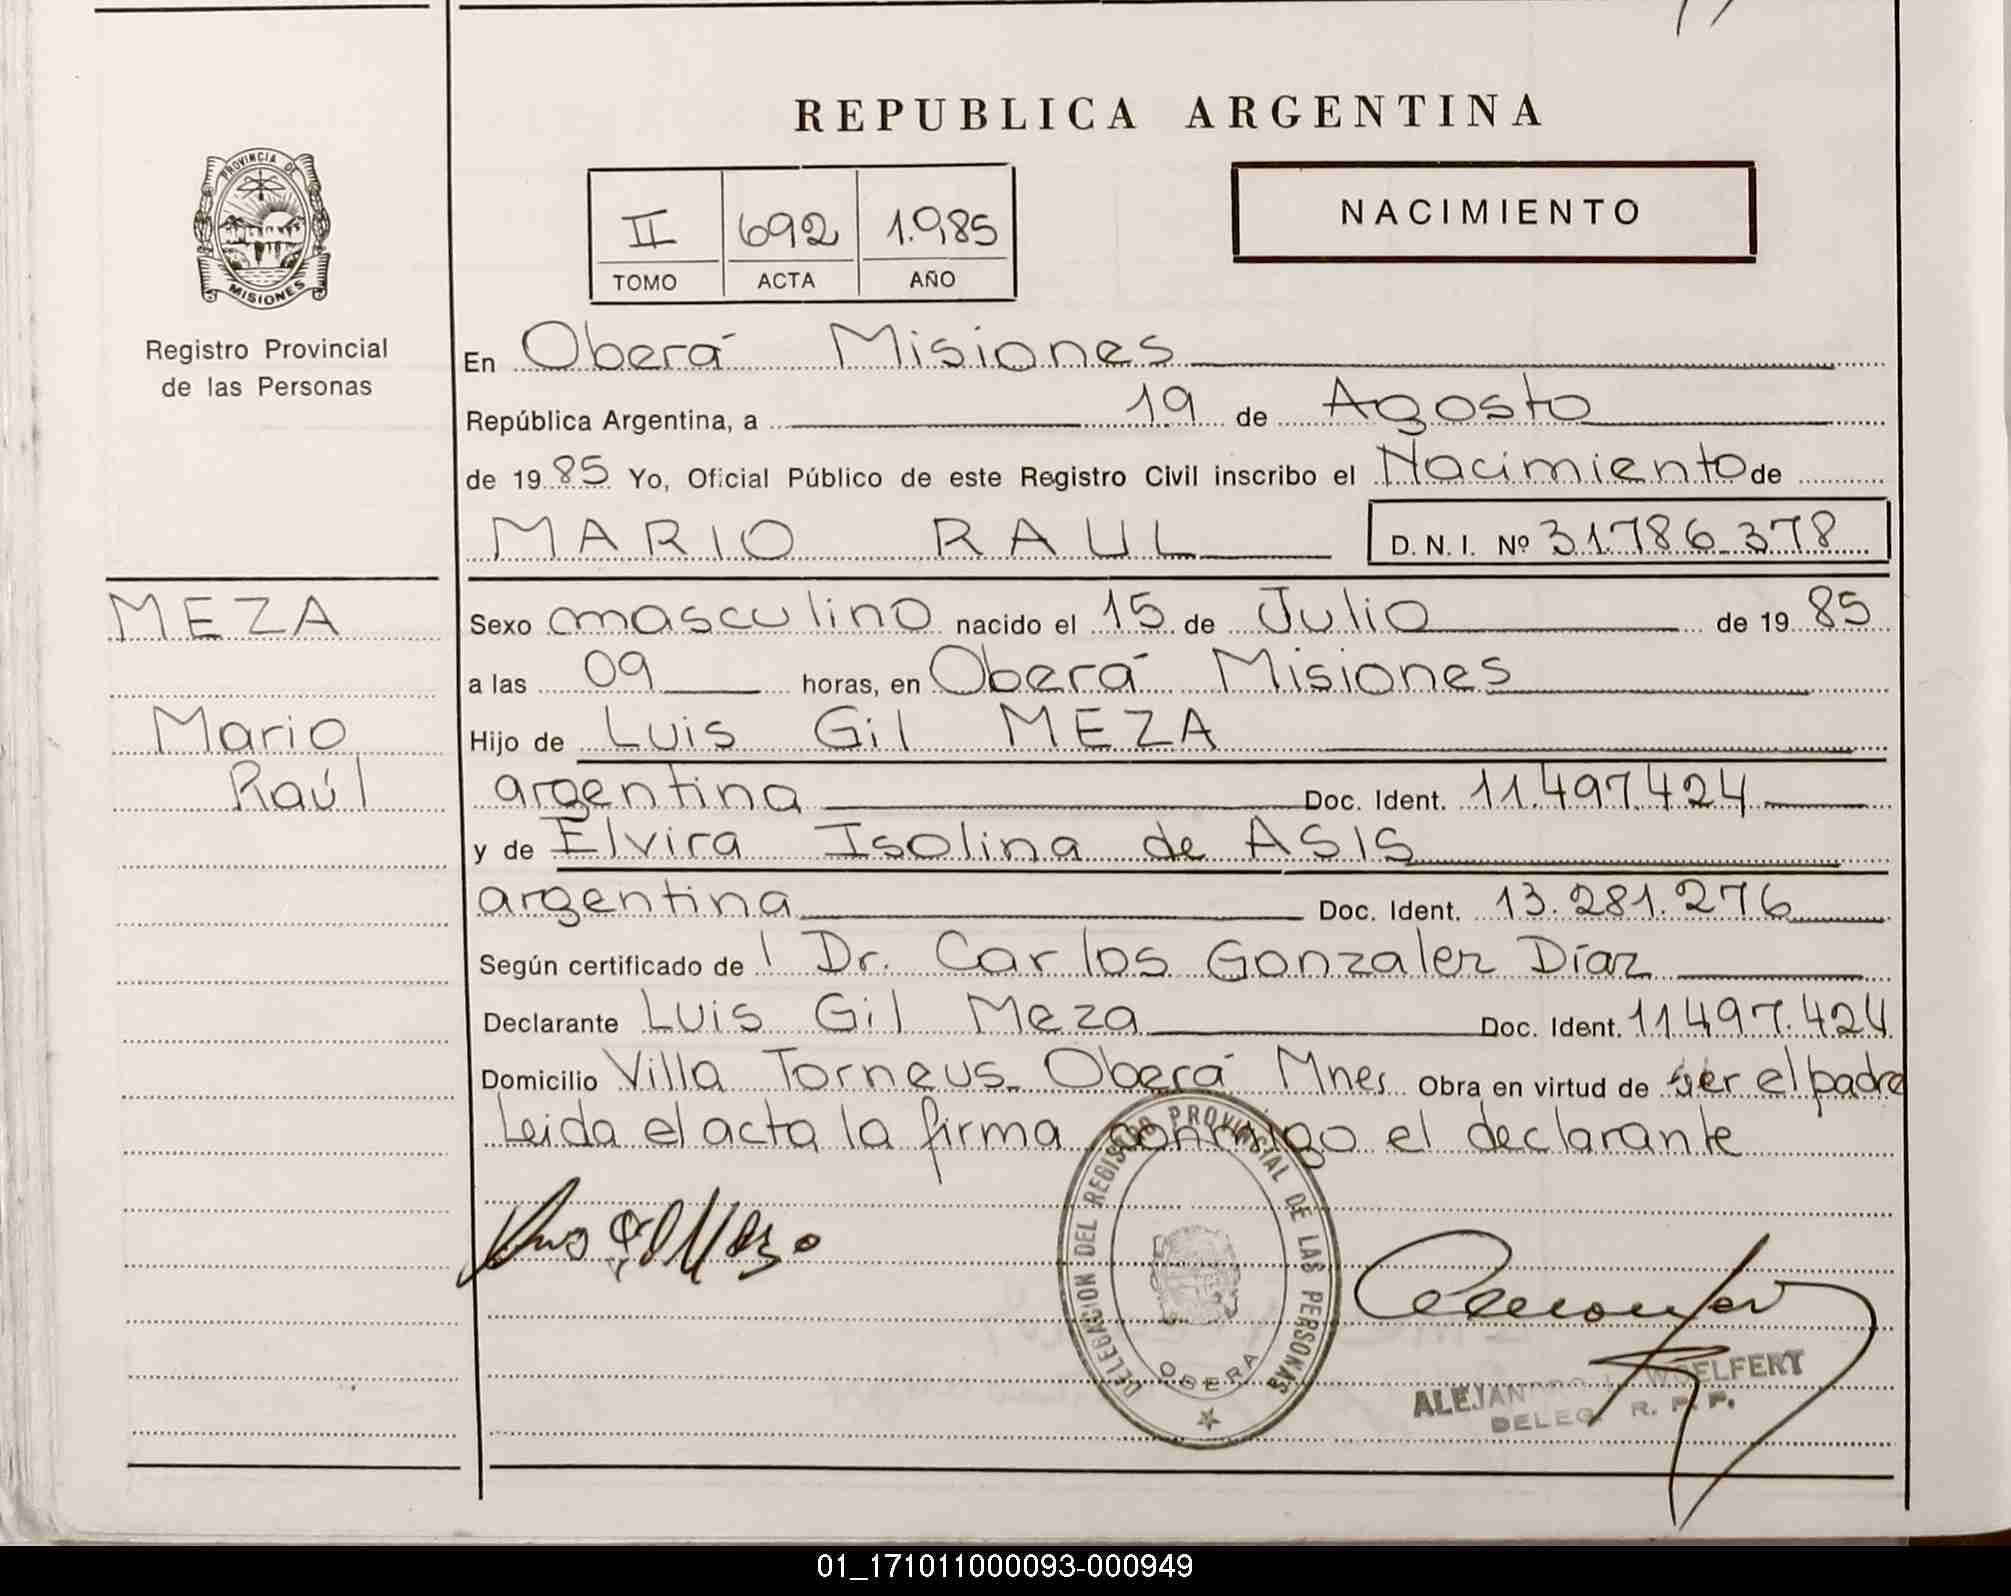 REPUBLICA ARGENTINA
PROVINCIA DE
MISIONES
Registro Provincial
de las Personas
II 692 1.985
TOMO ACTA AÑO
NACIMIENTO
En Oberá Misiones
República Argentina, a 19 de Agosto
de 1985 Yo, Oficial Público de este Registro Civil inscribo el Nacimiento de
MARIO RAUL D. N. I. Nº 31.786.378
MEZA
Mario
Raúl
Sexo masculino nacido el 15 de Julio de 1985
a las 09 horas, en Oberá Misiones
Hijo de Luis Gil MEZA
argentina Doc. Ident. 11.497.424
y de Elvira Isolina de ASIS
argentina Doc. Ident. 13.281.276
Según certificado de l Dr. Carlos Gonzalez Díaz
Declarante Luis Gil Meza Doc. Ident. 11.497.424
Domicilio Villa Torneus Oberá Mnes Obra en virtud de ser el padre
Leida el acta la firma conmigo el declarante
Luis Gil Meza
DELEGACION DEL REGISTRO PROVINCIAL DE LAS PERSONAS
OBERA
WOELFERT
DELEG. R. P. P.
01_171011000093-000949